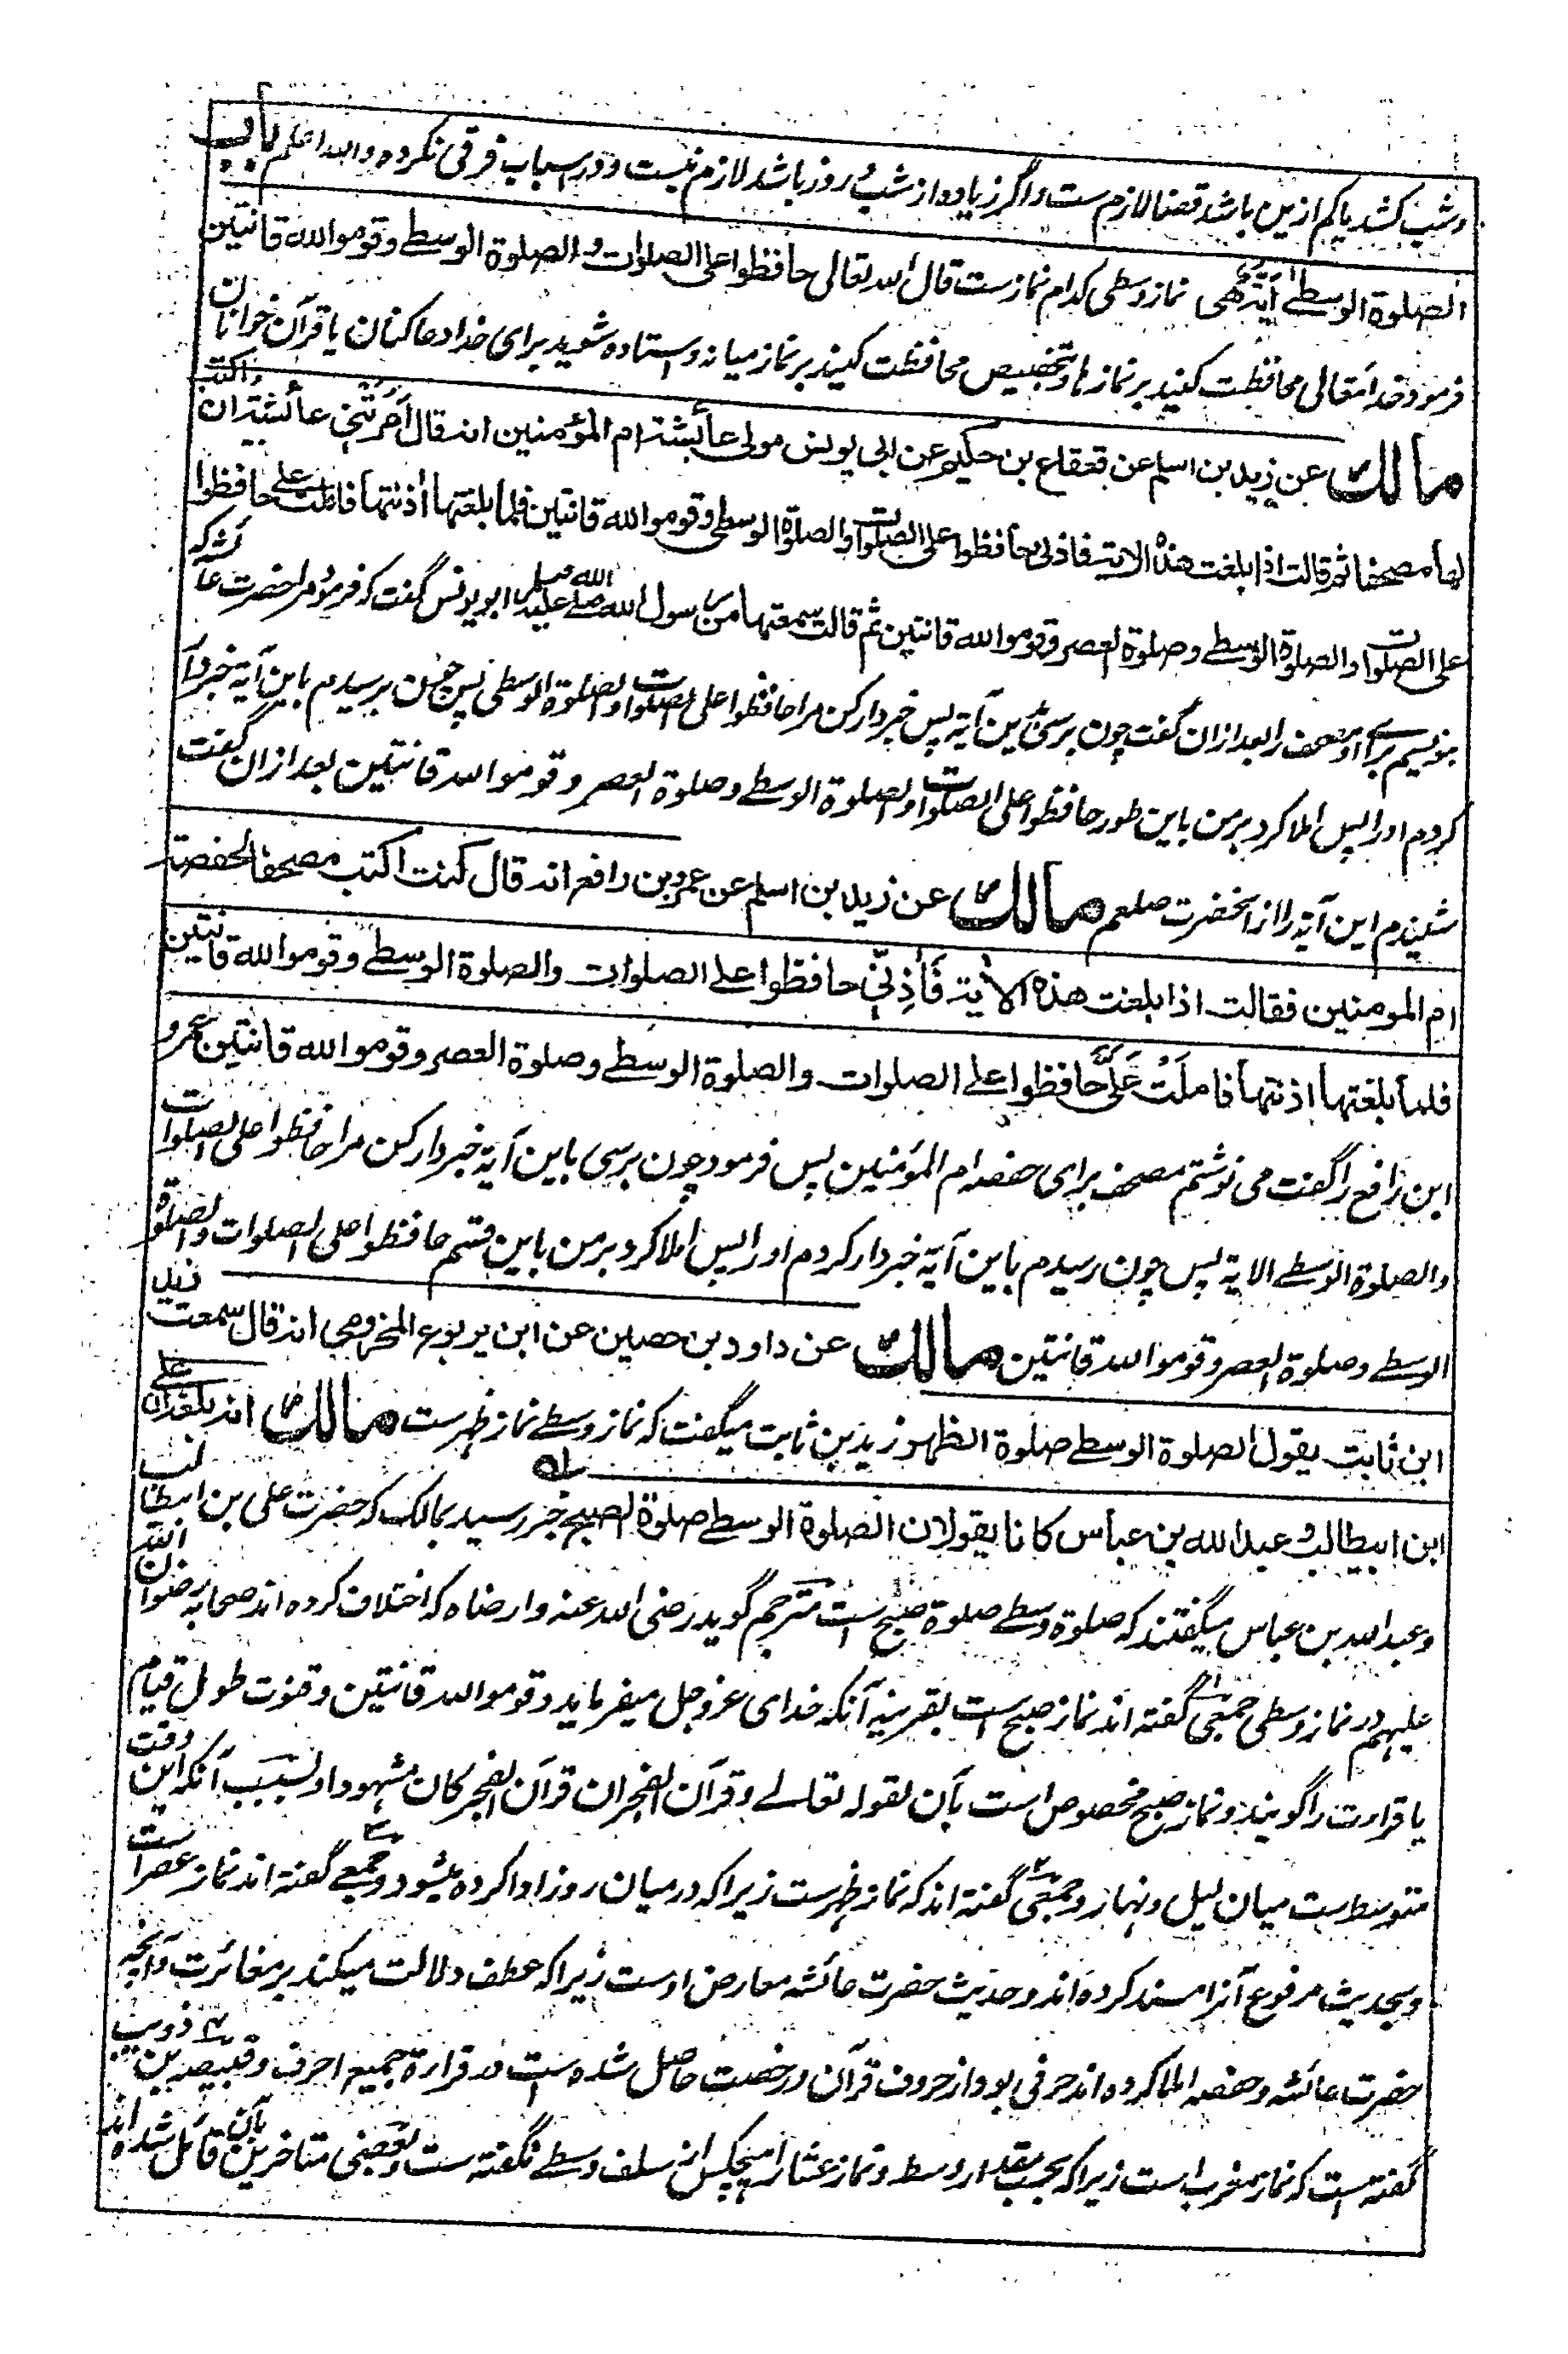 وشب کشد یا کم ازین باشد قضا لازم ست واگر زیاده از شب و روز باشد لازم نیست و در اسباب فرقی نکرده والله اعلم باب
الصلوة الوسطے ایتهی نماز وسطی کدام نماز ست قال الله تعالی حافظوا علی الصلوات والصلوة الوسطے وقوموا لله قانتین
فرمود خدا تعالی محافظت کنید بر نماز ها وتخصیص محافظت کنید بر نماز میانه واستاده شوید برای خدا دعا کنان یا قرآن خوانان
مالك عن زید بن اسلم عن قعقاع بن حکیم عن ابی یونس مولی عائشة ام المؤمنین انه قال اَمَرَتْنِی عائشة ان اکتب
لها مصحفا ثم قالت اذا بلغت هذه الایة فاذنی حافظوا علی الصلوات والصلوة الوسطی وقوموا لله قانتین فلما بلغتها اٰذنتها فاملت علے حافظوا
علی الصلوات والصلوة الوسطے وصلوة العصر وقوموا لله قانتین ثم قالت سمعتها من رسول الله صلی الله علیه ابو یونس گفت که فرمود مرا حضرت عائشه که
بنویسم برای او مصحف را بعد ازان گفت چون برسی بدین آیة پس خبردار کن مرا حافظوا علی الصلوات والصلوة الوسطی پس چون برسیدم باین آیة خبردار
کردم او را پس املا کرد بر من باین طور حافظوا علی الصلوات والصلوة الوسطے وصلوة العصر وقوموا لله قانتین بعد ازان گفت
شنیدم این آیة را از آنحضرت صلعم مالك عن زید بن اسلم عن عمرو بن رافع انه قال کنت اکتب مصحفا لحفصة
ام المومنین فقالت اذا بلغت هذه الاٰیة فَاٰذِنِّی حافظوا علے الصلوات والصلوة الوسطے وقوموا لله قانتین
فلما بلغتها اٰذنتها فاملَتْ عَلَیَّ حافظوا علے الصلوات والصلوة الوسطے وصلوة العصر وقوموا لله قانتین عمرو
ابن رافع را گفت می نوشتم مصحف برای حفصه ام المؤمنین پس فرمود چون برسی باین آیة خبردار کن مرا حافظوا علی الصلوات
والصلوة الوسطے الایة پس چون رسیدم باین آیة خبردار کردم او را پس املا کرد بر من باین قسم حافظوا علی الصلوات والصلوة
الوسطے وصلوة العصر وقوموا لله قانتین مالك عن داود بن حصین عن ابن یربوع المخزومی انه قال سمعت زید
ابن ثابت یقول الصلوة الوسطے صلوة الظهر زید بن ثابت میگفت که نماز وسطے نماز ظهر ست مالك انه بلغه ان علی
ابن ابیطالب و عبد الله بن عباس کانا یقولان الصلوة الوسطے صلوة الصبح خبر رسید بمالک که حضرت علی بن ابیطالب
وعبد الله بن عباس میگفتند که صلوة وسطے صلوة صبح است مترجم گوید رضی الله عنه وارضاه که اختلاف کرده اند صحابه رضوان الله
علیهم در نماز وسطی جمعی گفته اند نماز صبح است بقرینه آنکه خدای عز وجل میفرماید وقوموا لله قانتین وقنوت طول قیام
یا قراءت را گویند و نماز صبح مخصوص است بآن لقوله تعالے وقرآن الفجر ان قرآن الفجر کان مشهودا و بسبب آنکه این وقت
متوسط ست میان لیل ونهار وجمعی گفته اند که نماز ظهر ست زیرا که در میان روز ادا کرده میشود وجمعے گفته اند نماز عصر است
وبحدیث مرفوع آنرا مسند کرده اند وحدیث حضرت عائشه معارض اوست زیرا که عطف دلالت میکند بر مغائرت وآنچه
حضرت عائشه وحفصه املا کرده اند حرفی بود از حروف قرآن ورخصت حاصل شده است در قراءة جمیع احرف وقبیصه بن ذویب
گفته است که نماز مغرب است زیرا که بحسب مقدار وسط ونماز عشا را هیچکس از سلف وسطے نگفته ست وبعضی متاخرین بآن قائل شده اند